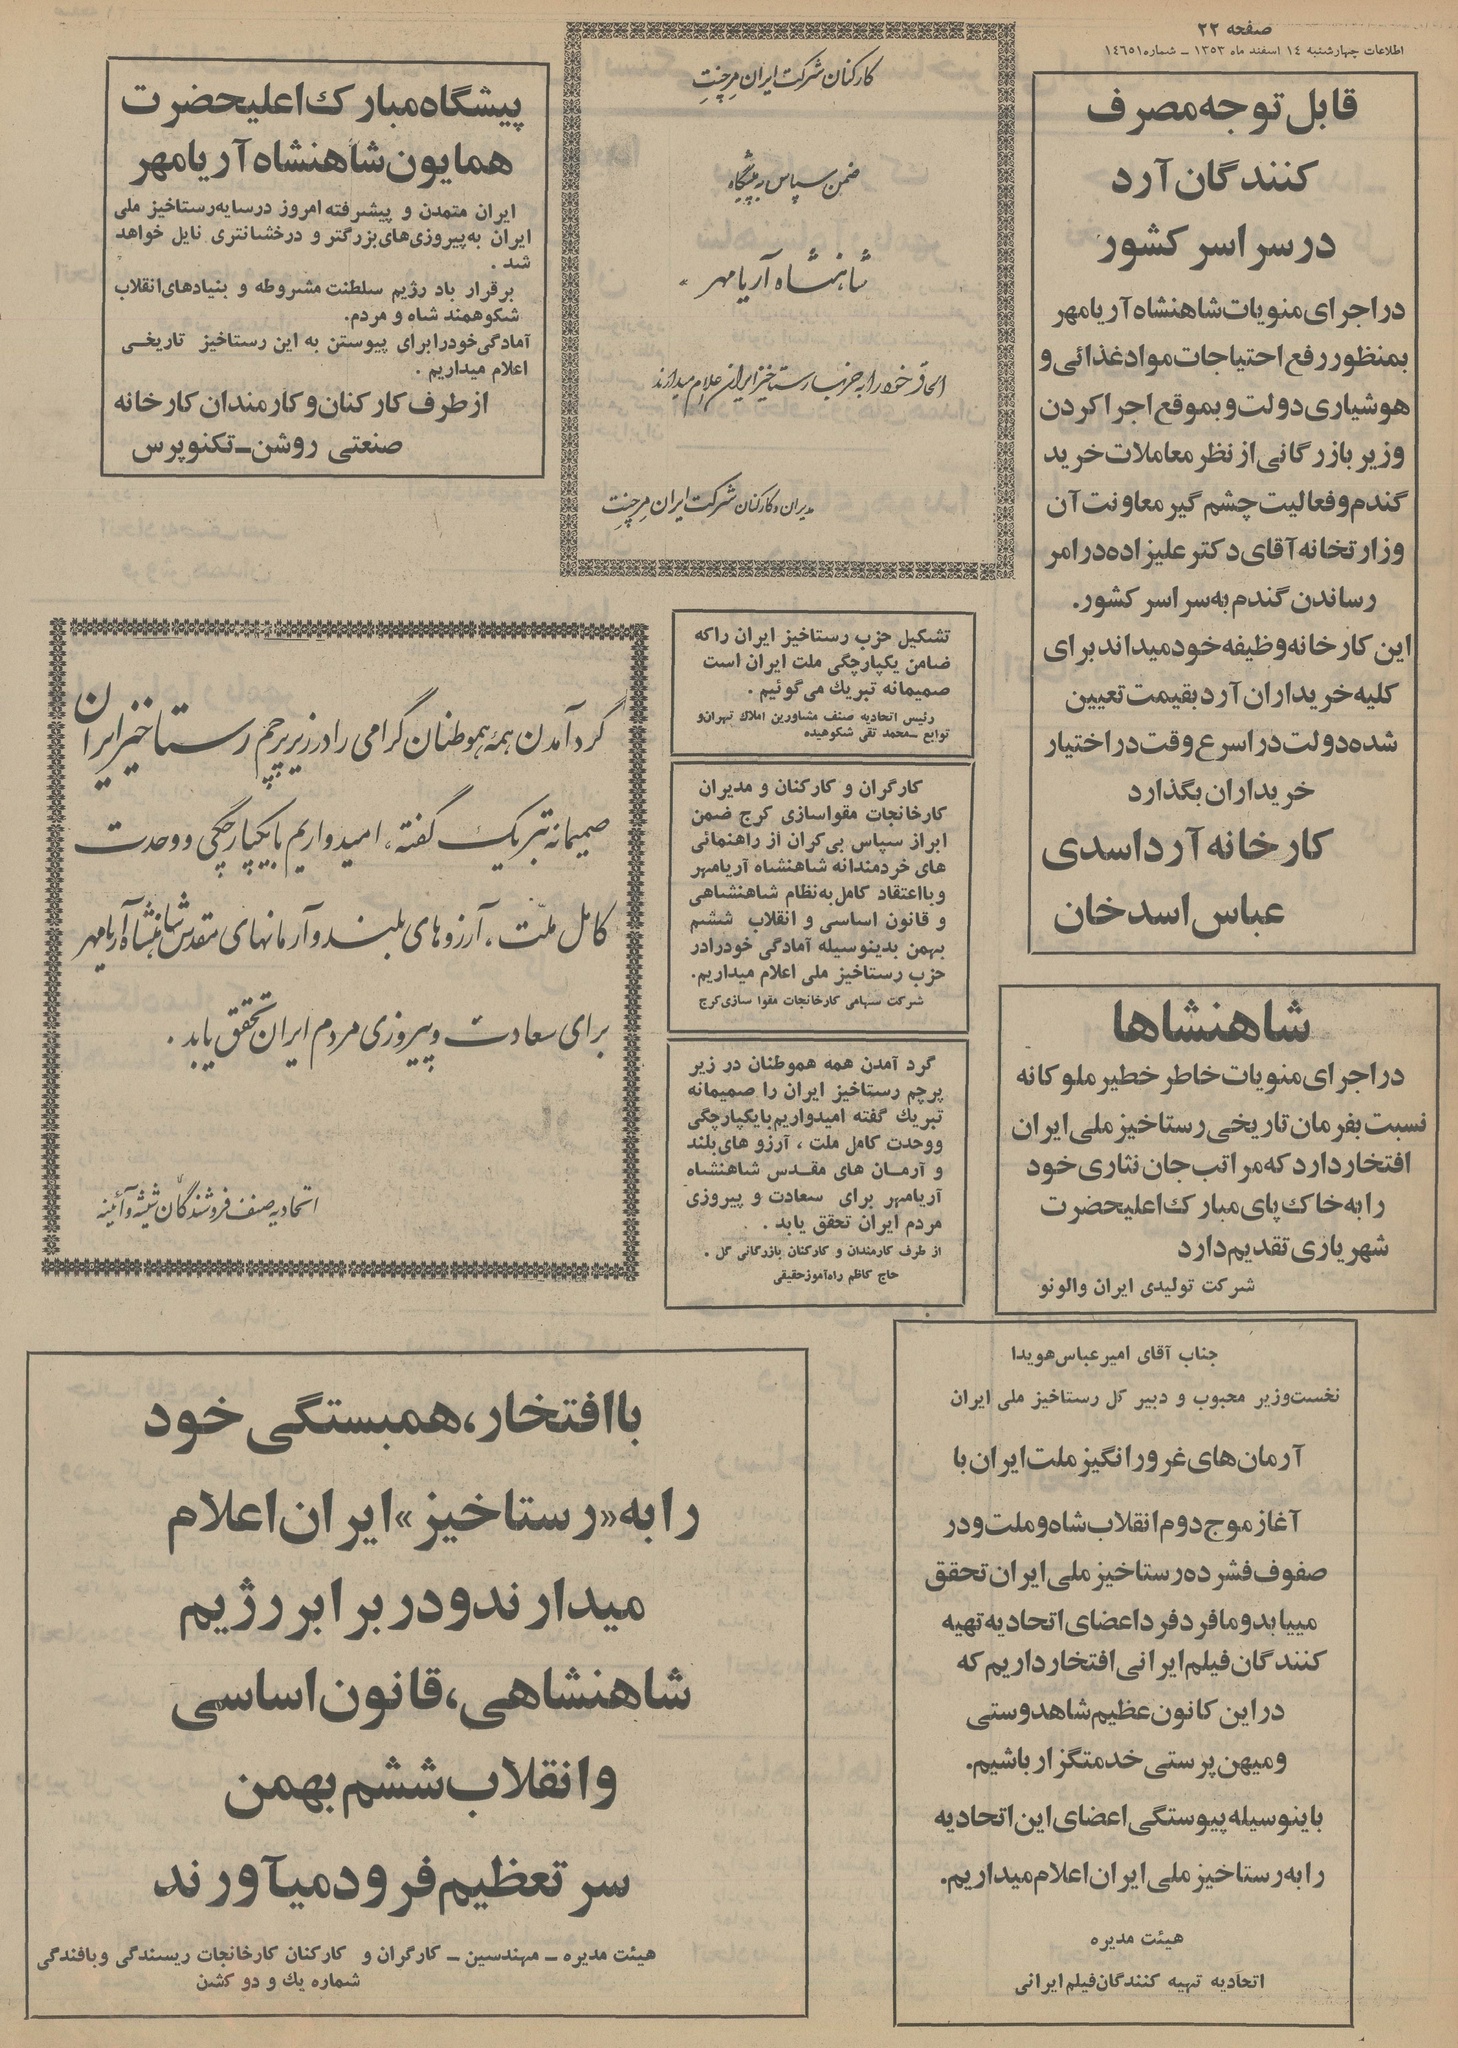 صفحه ۲۲
اطلاعات چهارشنبه ۱۴ اسفند ماه ۱۳۵۳ ــ شماره ۱۴۶۵۱
قابل توجه مصرف
کنندگان آرد
در سراسر کشور
در اجرای منویات شاهنشاه آریامهر
بمنظور رفع احتیاجات مواد غذائی و
هوشیاری دولت و بموقع اجرا کردن
وزیر بازرگانی از نظر معاملات خرید
گندم و فعالیت چشم گیر معاونت آن
وزارتخانه آقای دکتر علیزاده در امر
رساندن گندم به سراسر کشور.
این کارخانه وظیفه خود میداند برای
کلیه خریداران آرد بقیمت تعیین
شده دولت در اسرع وقت در اختیار
خریداران بگذارد
کارخانه آرد اسدی
عباس اسدخان
کارکنان شرکت ایران مرچنت
ضمن سپاس به پیشگاه
شاهنشاه آریامهر .
الحاق خود را به حزب رستاخیز ایران اعلام میدارند
مدیران و کارکنان شرکت ایران مرچنت
پیشگاه مبارک اعلیحضرت
همایون شاهنشاه آریامهر
ایران متمدن و پیشرفته امروز در سایه رستاخیز ملی
ایران به پیروزی‌های بزرگتر و درخشانتری نایل خواهد
شد .
برقرار باد رژیم سلطنت مشروطه و بنیادهای انقلاب
شکوهمند شاه و مردم.
آمادگی خود را برای پیوستن به این رستاخیز تاریخی
اعلام میداریم .
از طرف کارکنان و کارمندان کارخانه
صنعتی روشن ــ تکنوپرس
تشکیل حزب رستاخیز ایران را که
ضامن یکپارچگی ملت ایران است
صمیمانه تبریک می‌گوئیم .
رئیس اتحادیه صنف مشاورین املاک تهران و
توابع ــ محمد تقی شکوهیده
کارگران و کارکنان و مدیران
کارخانجات مقواسازی کرج ضمن
ابراز سپاس بی‌کران از راهنمائی
های خردمندانه شاهنشاه آریامهر
و با اعتقاد کامل به نظام شاهنشاهی
و قانون اساسی و انقلاب ششم
بهمن بدینوسیله آمادگی خود را در
حزب رستاخیز ملی اعلام میداریم.
شرکت سهامی کارخانجات مقوا سازی کرج
گرد آمدن همه هموطنان در زیر
پرچم رستاخیز ایران را صمیمانه
تبریک گفته امیدواریم با یکپارچگی
و وحدت کامل ملت ، آرزو های بلند
و آرمان های مقدس شاهنشاه
آریامهر برای سعادت و پیروزی
مردم ایران تحقق یابد .
از طرف کارمندان و کارکنان بازرگانی گل .
حاج کاظم راه‌آموز حقیقی
گرد آمدن همهٔ هموطنان گرامی را در زیر پرچم رستاخیز ایران
صمیمانه تبریک گفته، امیدواریم با یکپارچگی و وحدت
کامل ملت ، آرزوهای بلند و آرمانهای مقدس شاهنشاه آریامهر
برای سعادت و پیروزی مردم ایران تحقق یابد .
اتحادیه صنف فروشندگان شیشه و آئینه
شاهنشاها
در اجرای منویات خاطر خطیر ملوکانه
نسبت بفرمان تاریخی رستاخیز ملی ایران
افتخار دارد که مراتب جان نثاری خود
را به خاک پای مبارک اعلیحضرت
شهریاری تقدیم دارد
شرکت تولیدی ایران والونو
جناب آقای امیر عباس هویدا
نخست‌وزیر محبوب و دبیر کل رستاخیز ملی ایران
آرمان‌های غرورانگیز ملت ایران با
آغاز موج دوم انقلاب شاه و ملت و در
صفوف فشرده رستاخیز ملی ایران تحقق
مییابد و ما فرد فرد اعضای اتحادیه تهیه
کنندگان فیلم ایرانی افتخار داریم که
در این کانون عظیم شاهدوستی
و میهن پرستی خدمتگزار باشیم.
باینوسیله پیوستگی اعضای این اتحادیه
را به رستاخیز ملی ایران اعلام میداریم.
هیئت مدیره
اتحادیه تهیه کنندگان فیلم ایرانی
با افتخار، همبستگی خود
را به «رستاخیز» ایران اعلام
میدارند و در برابر رژیم
شاهنشاهی، قانون اساسی
و انقلاب ششم بهمن
سر تعظیم فرود میآورند
هیئت مدیره ــ مهندسین ــ کارگران و کارکنان کارخانجات ریسندگی و بافندگی
شماره یک و دو کشن